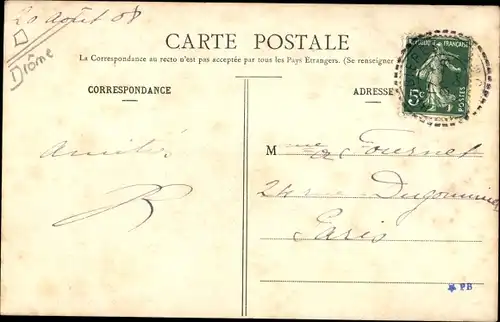 20 août 08
Drôme
CARTE POSTALE
La Correspondance au recto n'est pas acceptée par tous les Pays Étrangers. (Se renseigner
CORRESPONDANCE
ADRESSE
RÉPUBLIQUE FRANÇAISE
5c
POSTES
Amitiés
R
Mme Fournet
24 rue Dugommier
Paris
PB